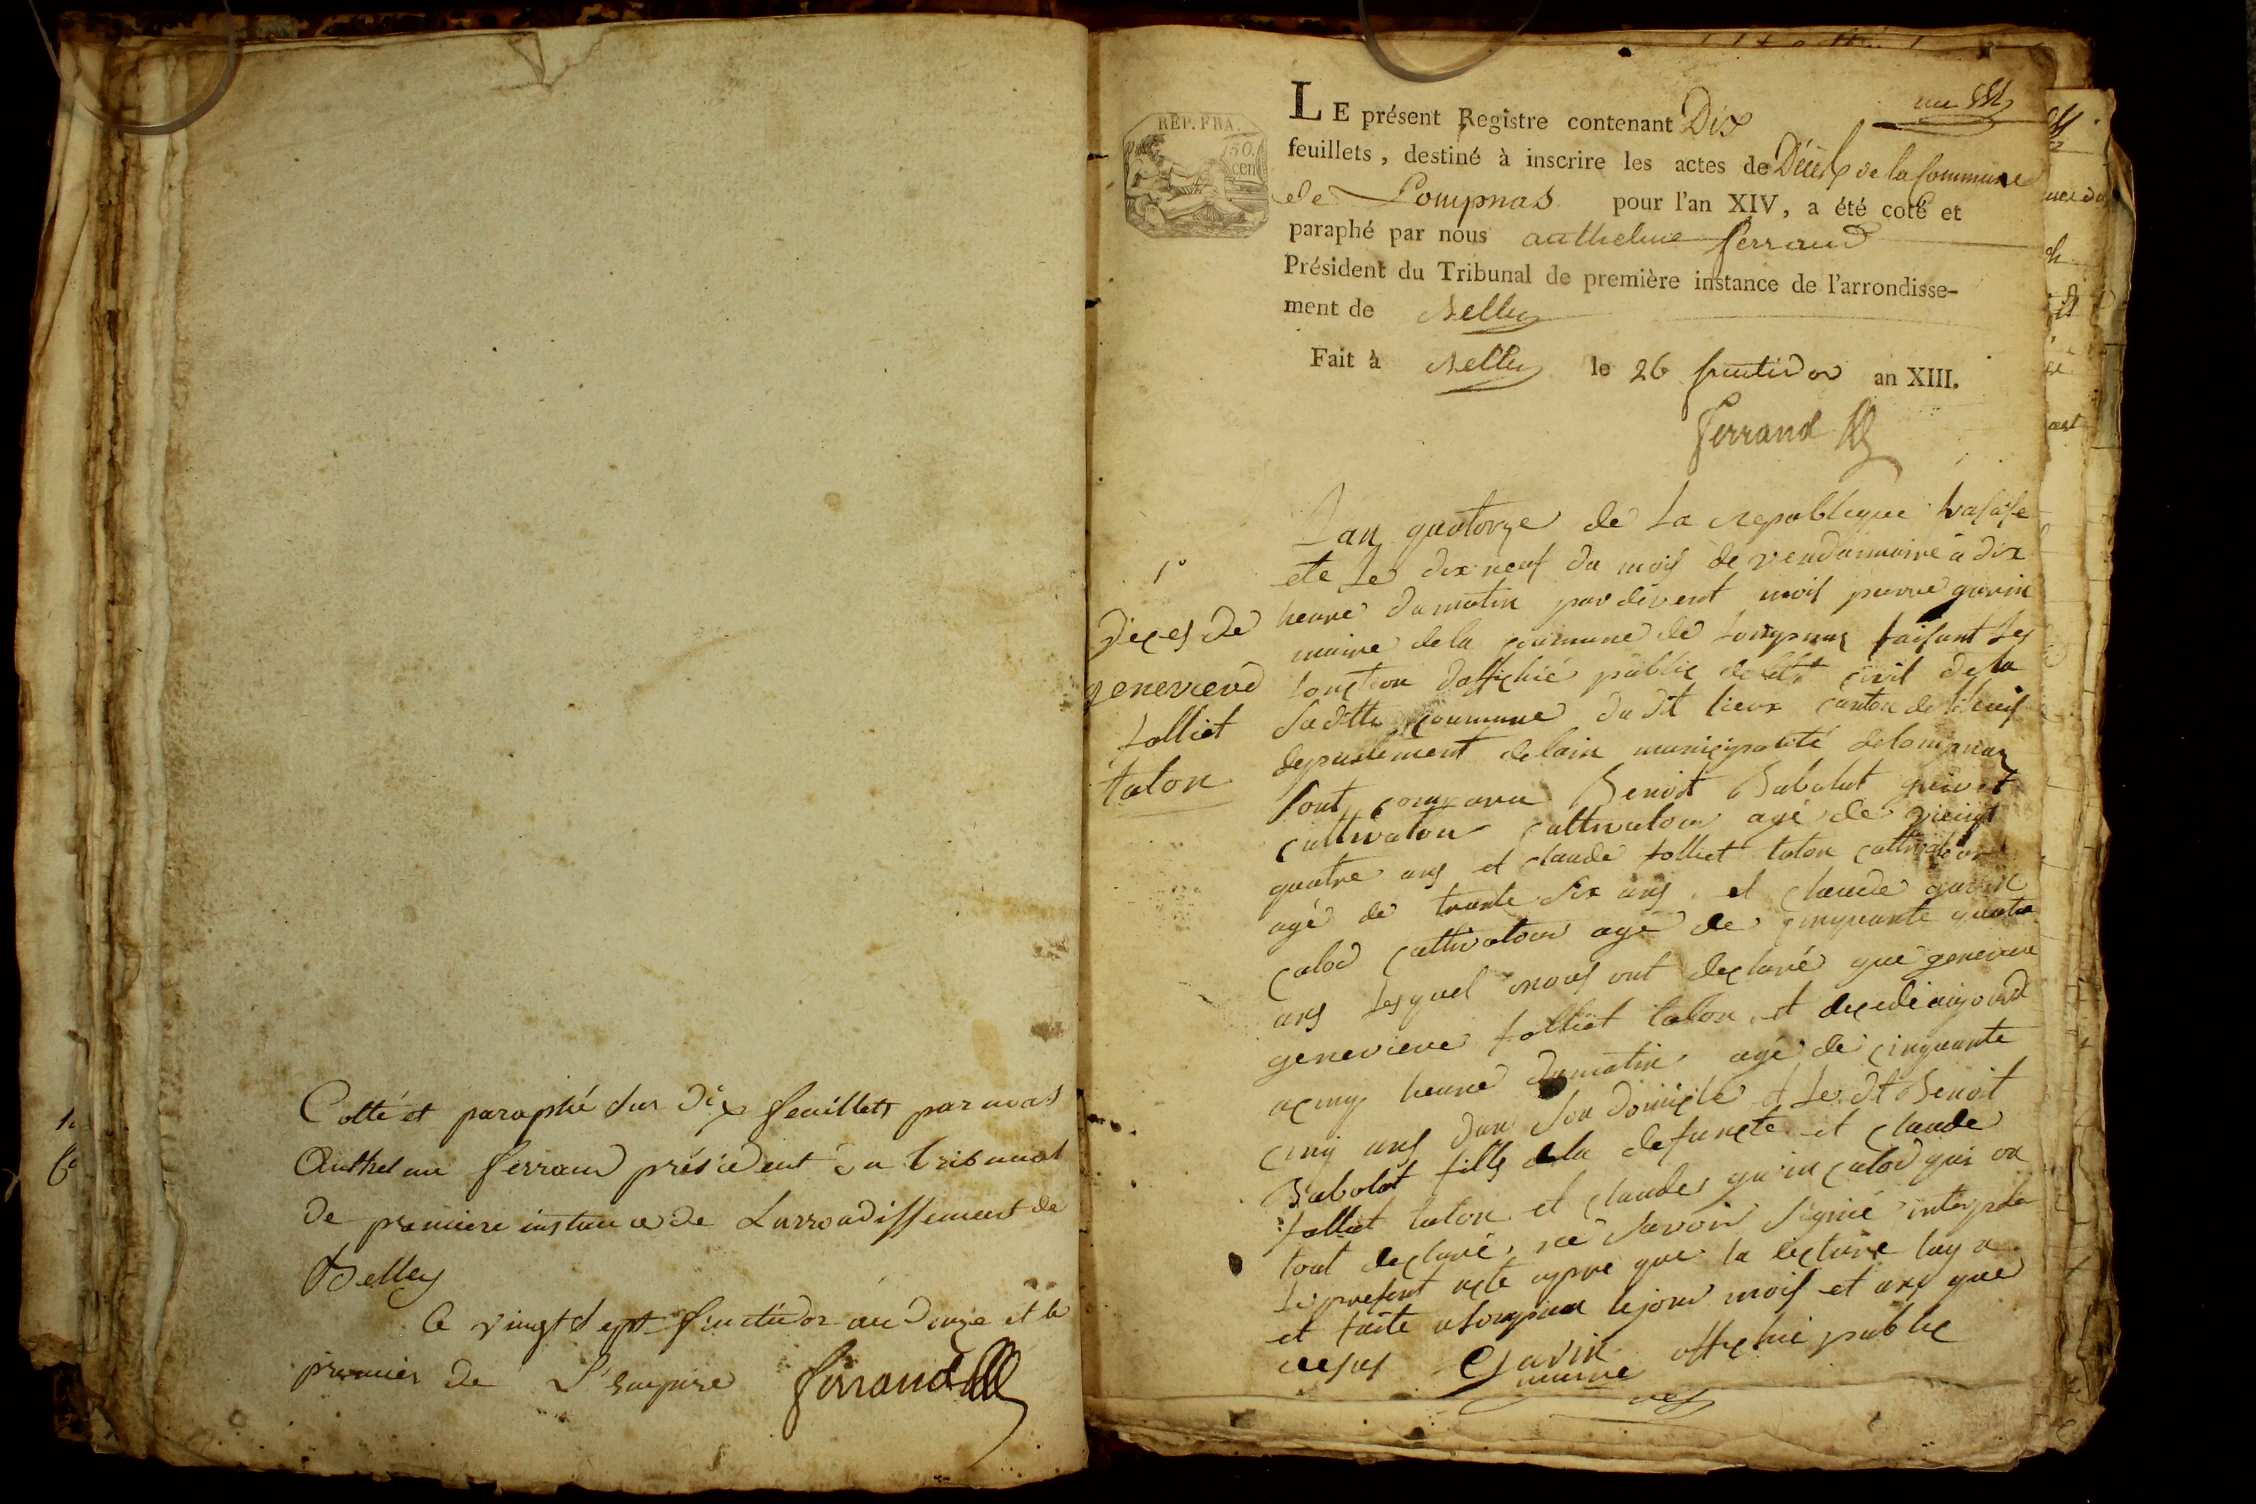 Cotté et paraphé sur dix feuillets par nous
Anthelme ferrand président du tribunal
de premiere instance de Larrondissement de
Belley
le vingt sept fructidor an douze et le
premier de L'empire ferrand
REP. FRA.
50.
cen
LE présent Registre contenant Dix
feuillets, destiné à inscrire les actes de Décès de la Commune
de Lompnas pour l'an XIV, a été coté et
paraphé par nous anthelme ferrand
Président du Tribunal de première instance de l'arrondisse-
ment de Belley
Fait à Belley le 26 fructidor an XIII.
ferrand
1°
deces de
genevieve
tolliet
talon
Lan quatorze de la republique
et le dix neuf du mois de vendamiaire a dix
heure du matin par devent mois pierre gavin
maire de la coumune de Lompnas faisant les
fonction daffichié public de letat civil de la
saditte coumune du dit lieux canton de
departement de lain municipalité delompnas
sont comparu Benoit Babolat
cultivatou cultivatour agé de vieingt
quatre ans et claude tolliet talon cultivatour
agé de trante six ans et claude gavin
calod cultivatour agé de cinquante quatre
ans lesquel nous ont declaré que genevieve
genevieve tolliet talon et decedé aujourd
acinq heure du matin agé de cinquante
cinq ans dan son domicile et le dit Benoit
Babolat fils de la defuncte et claude
tolliet talon et claude gavin calod qui on
tout declaré ne savoir signié
le present acte apprè que la lecture
et faite a lompnas le jour mois et ans que
desus Gavin offichié public
maire